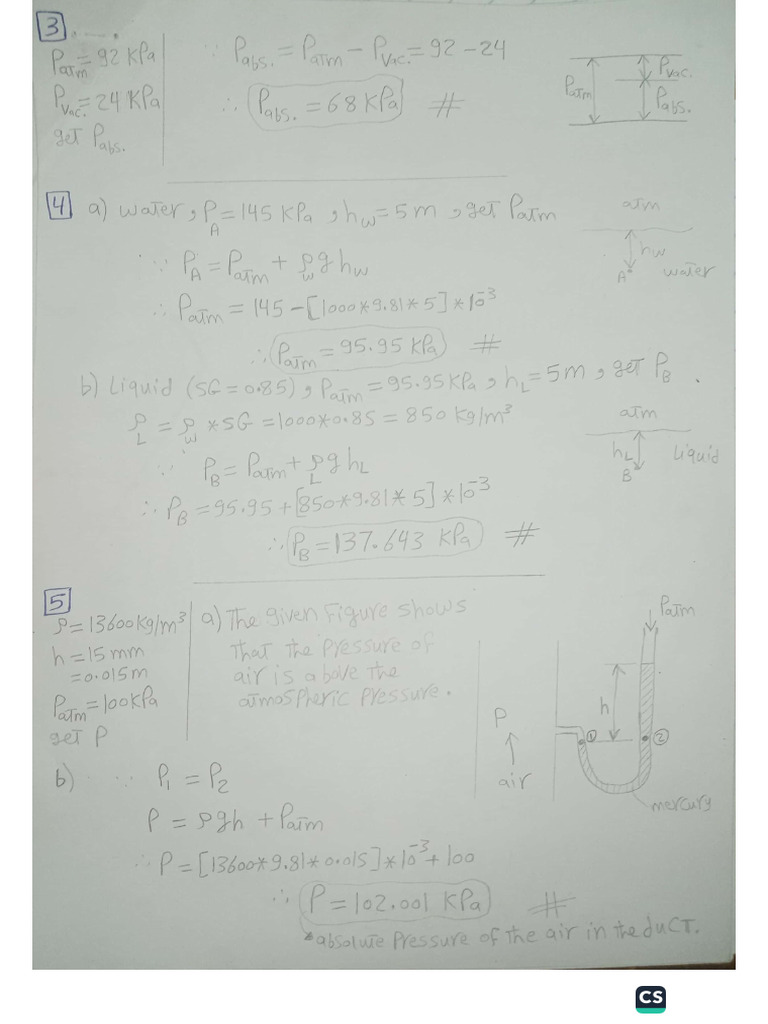 3
P_atm = 92 kPa
P_vac. = 24 kPa
get P_abs.
∵ P_abs. = P_atm − P_vac. = 92 − 24
∴ P_abs. = 68 kPa #
P_atm P_vac. P_abs.
4 a) water, P_A = 145 kPa, h_w = 5 m, get P_atm
∵ P_A = P_atm + ρ_w g h_w
∴ P_atm = 145 − [1000*9.81*5] * 10^-3
∴ P_atm = 95.95 kPa #
atm
h_w
A water
b) Liquid (SG = 0.85), P_atm = 95.95 kPa, h_L = 5 m, get P_B.
ρ_L = ρ_w * SG = 1000*0.85 = 850 kg/m³
∵ P_B = P_atm + ρ_L g h_L
∴ P_B = 95.95 + [850*9.81*5] * 10^-3
∴ P_B = 137.643 kPa #
atm
h_L Liquid
B
5
ρ = 13600 kg/m³
h = 15 mm
= 0.015 m
P_atm = 100 kPa
get P
a) The given Figure shows
that the pressure of
air is above the
atmospheric pressure.
P_atm
h
P
① ②
air
mercury
b) ∵ P₁ = P₂
P = ρgh + P_atm
∴ P = [13600*9.81*0.015] * 10^-3 + 100
∴ P = 102.001 kPa #
*absolute pressure of the air in the duct.
CS